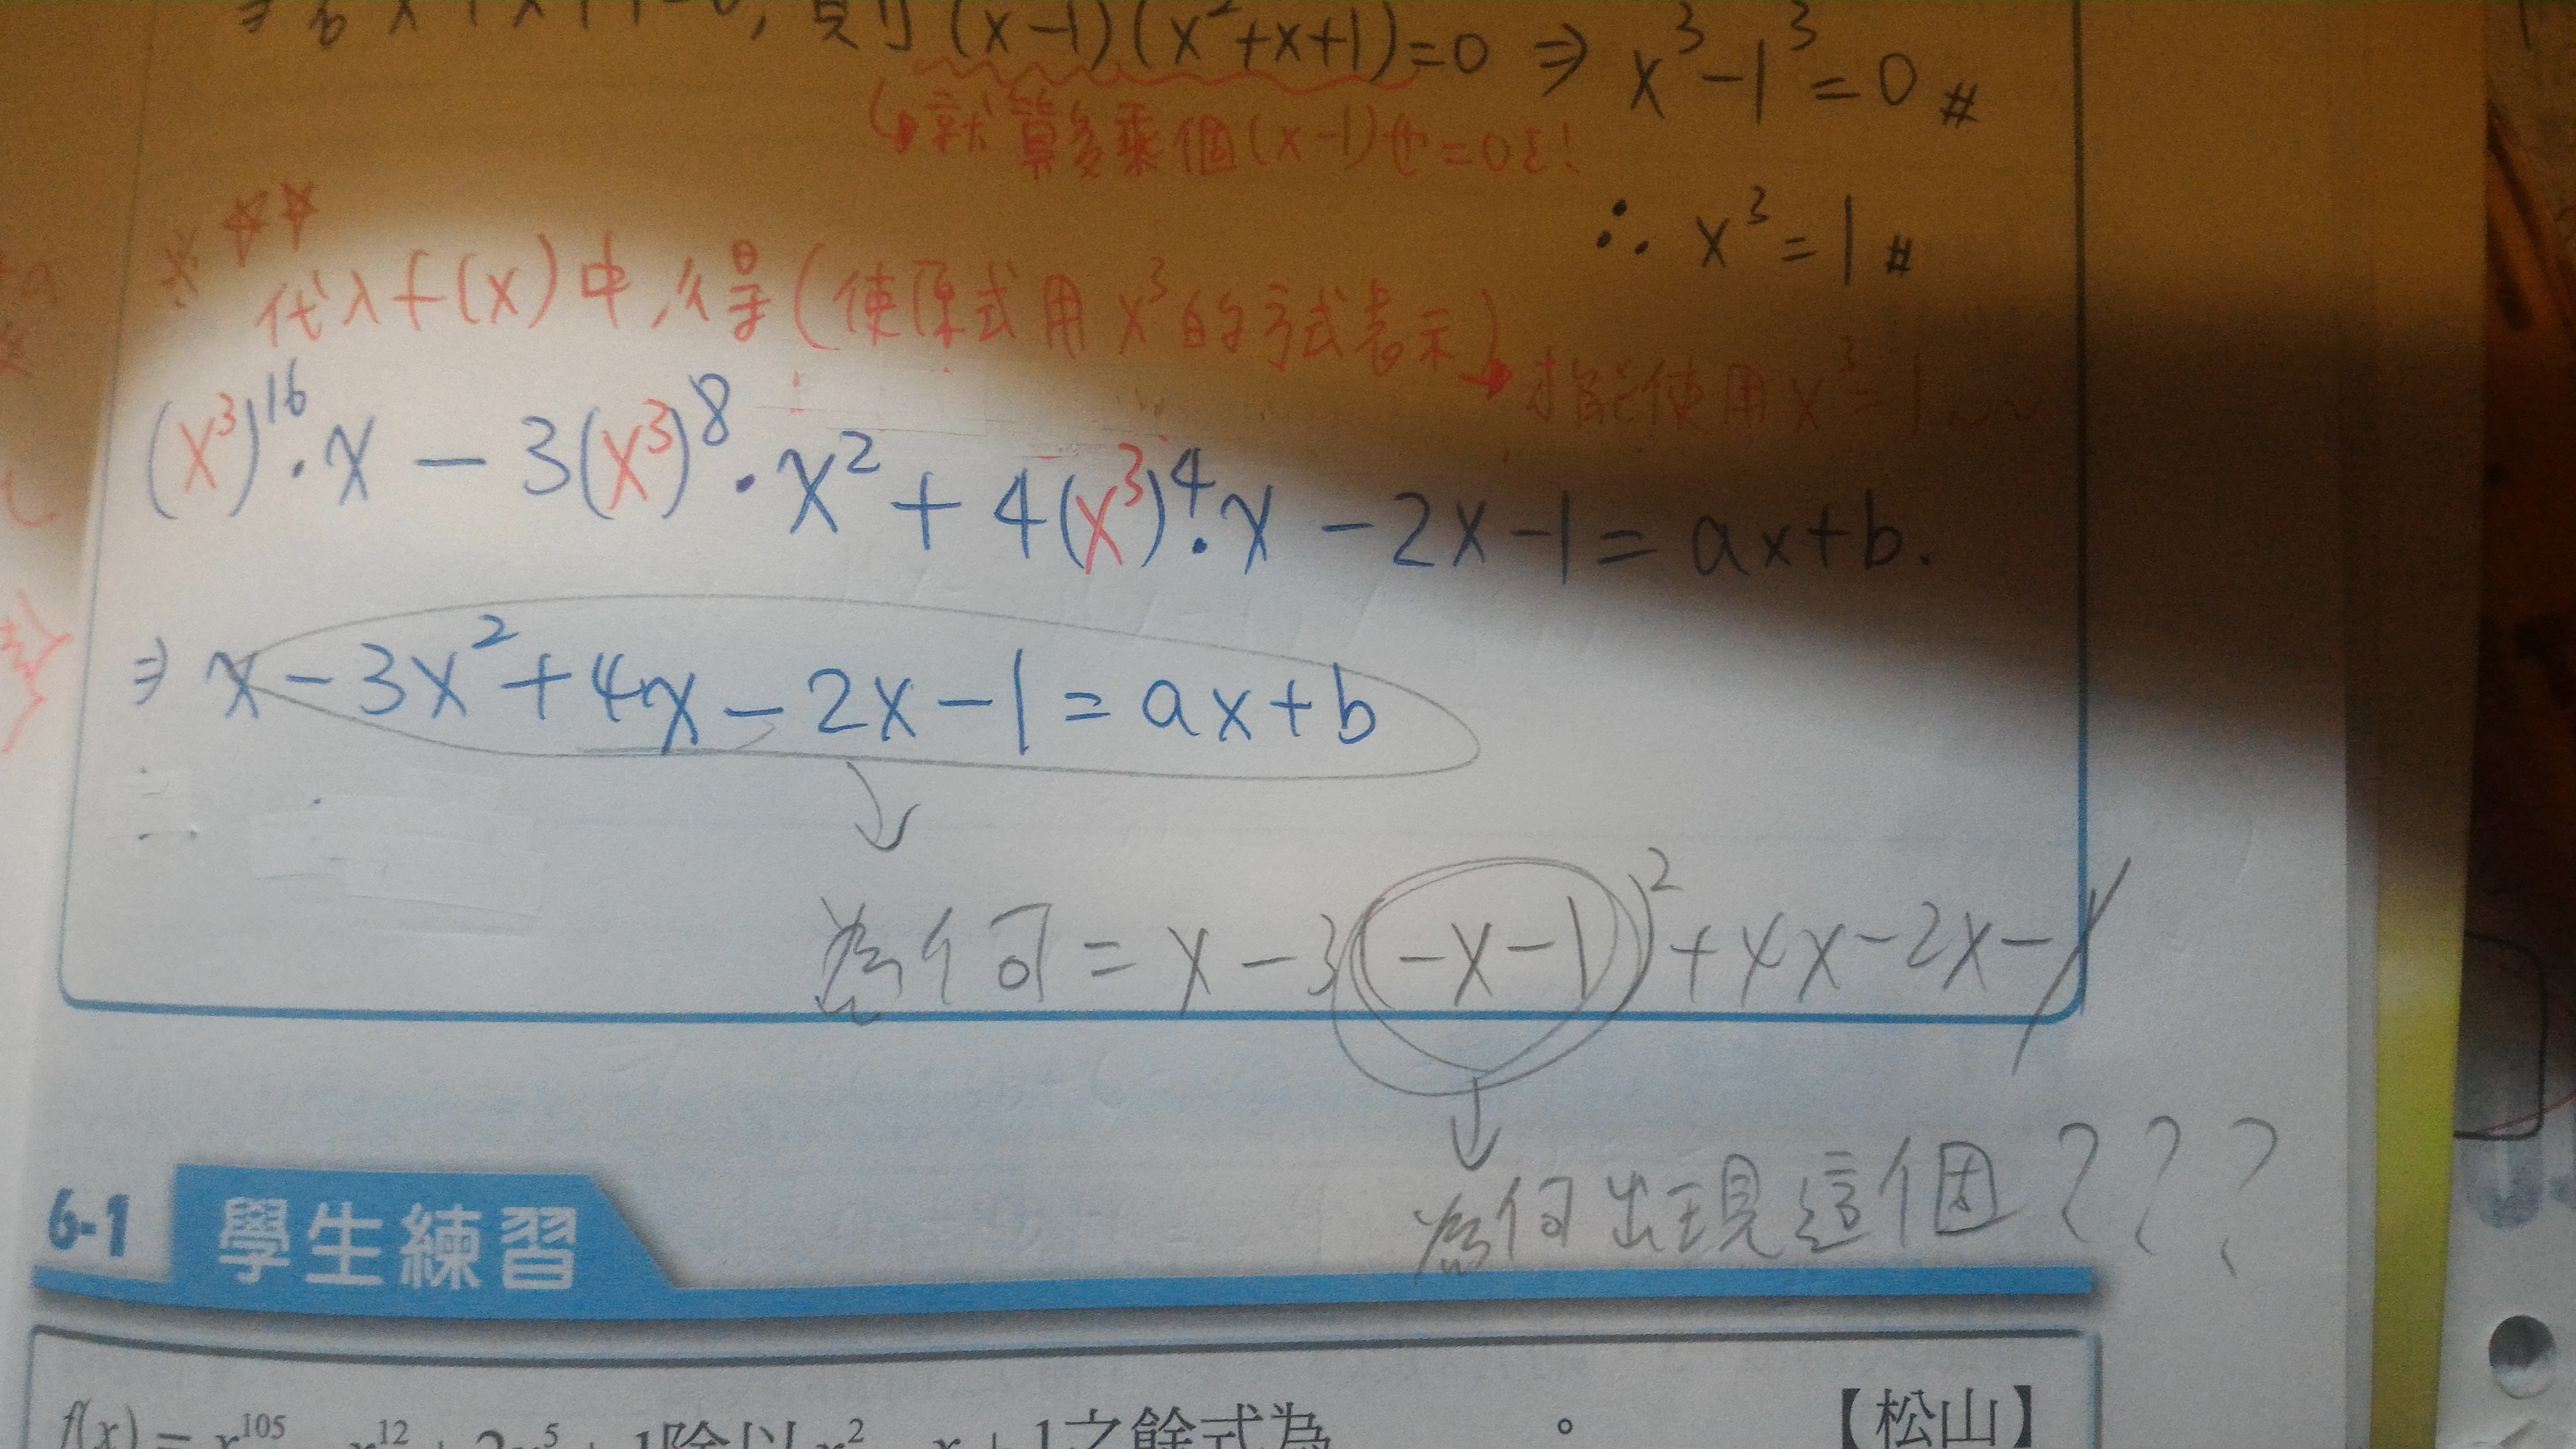 (x-1)(x²+x+1)=0 ⇒ x³-1³=0 #
↳就算多乘個(x-1)也=0
∴ x³=1 #
代入f(x)中,得(使原式用x³的方式表示)→才能使用x³=1
(x³)¹⁶·x-3(x³)⁸·x²+4(x³)⁴·x-2x-1=ax+b.
⇒ x-3x²+4x-2x-1=ax+b
為何=x-3(-x-1)²+4x-2x-1
為何出現這個???
6-1 學生練習
除以 之餘式為 。 【松山】